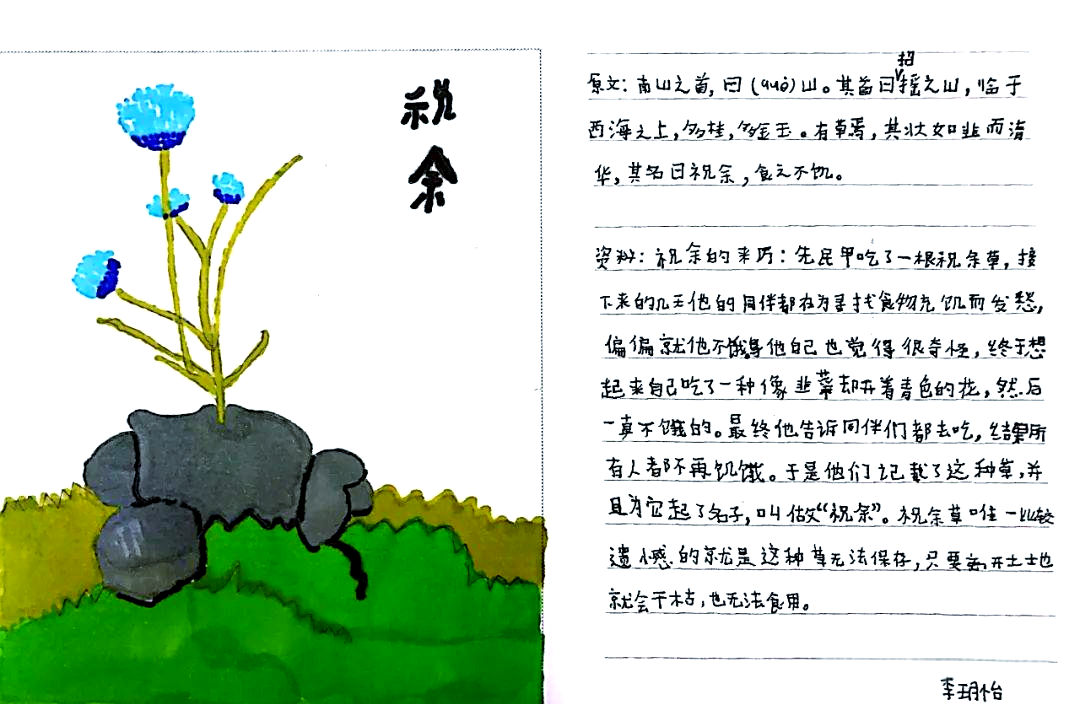 祝
余
原文：南山之首，曰（què）山。其首曰招摇之山，临于
西海之上，多桂，多金玉。有草焉，其状如韭而青
华，其名曰祝余，食之不饥。
资料：祝余的来历：先民甲吃了一根祝余草，接
下来的几天他的同伴都在为寻找食物充饥而发愁，
偏偏就他不饿，他自己也觉得很奇怪，终于想
起来自己吃了一种像韭菜却开着青色的花，然后
一直不饿的。最终他告诉同伴们都去吃，结果所
有人都不再饥饿。于是他们记载了这种草，并
且为它起了名子，叫做“祝余”。祝余草唯一比较
遗憾的就是这种草无法保存，只要离开土地
就会干枯，也无法食用。
李玥怡